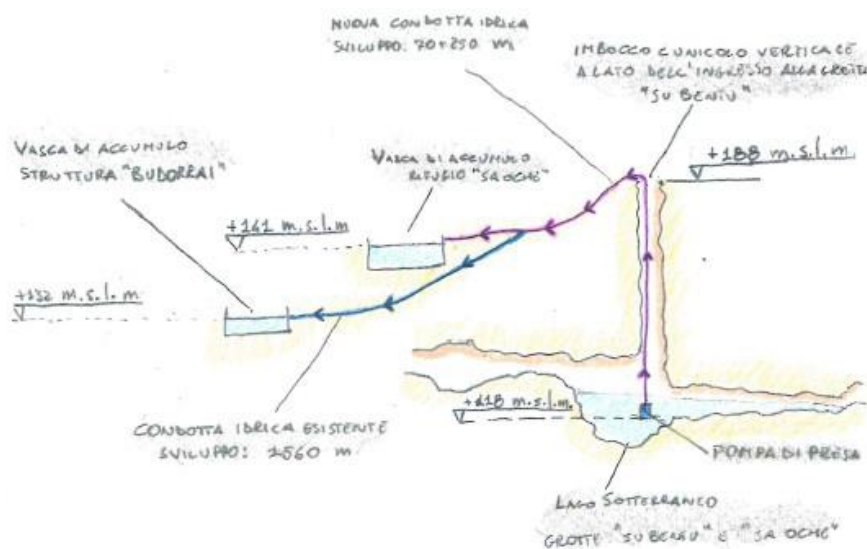 NUOVA CONDOTTA IDRICA
SVILUPPO: 70+250 m
IMBOCCO CUNICOLO VERTICALE
A LATO DELL'INGRESSO ALLA GROTTA
"SU BENTU"
VASCA DI ACCUMULO
STRUTTURA "BUDORRAI"
VASCA DI ACCUMULO
RIFUGIO "SA OCHE"
+188 m.s.l.m
+141 m.s.l.m
+132 m.s.l.m
+118 m.s.l.m.
CONDOTTA IDRICA ESISTENTE
SVILUPPO: 1560 m
POMPA DI PRESA
LAGO SOTTERRANEO
GROTTE "SU BENTU" E "SA OCHE"